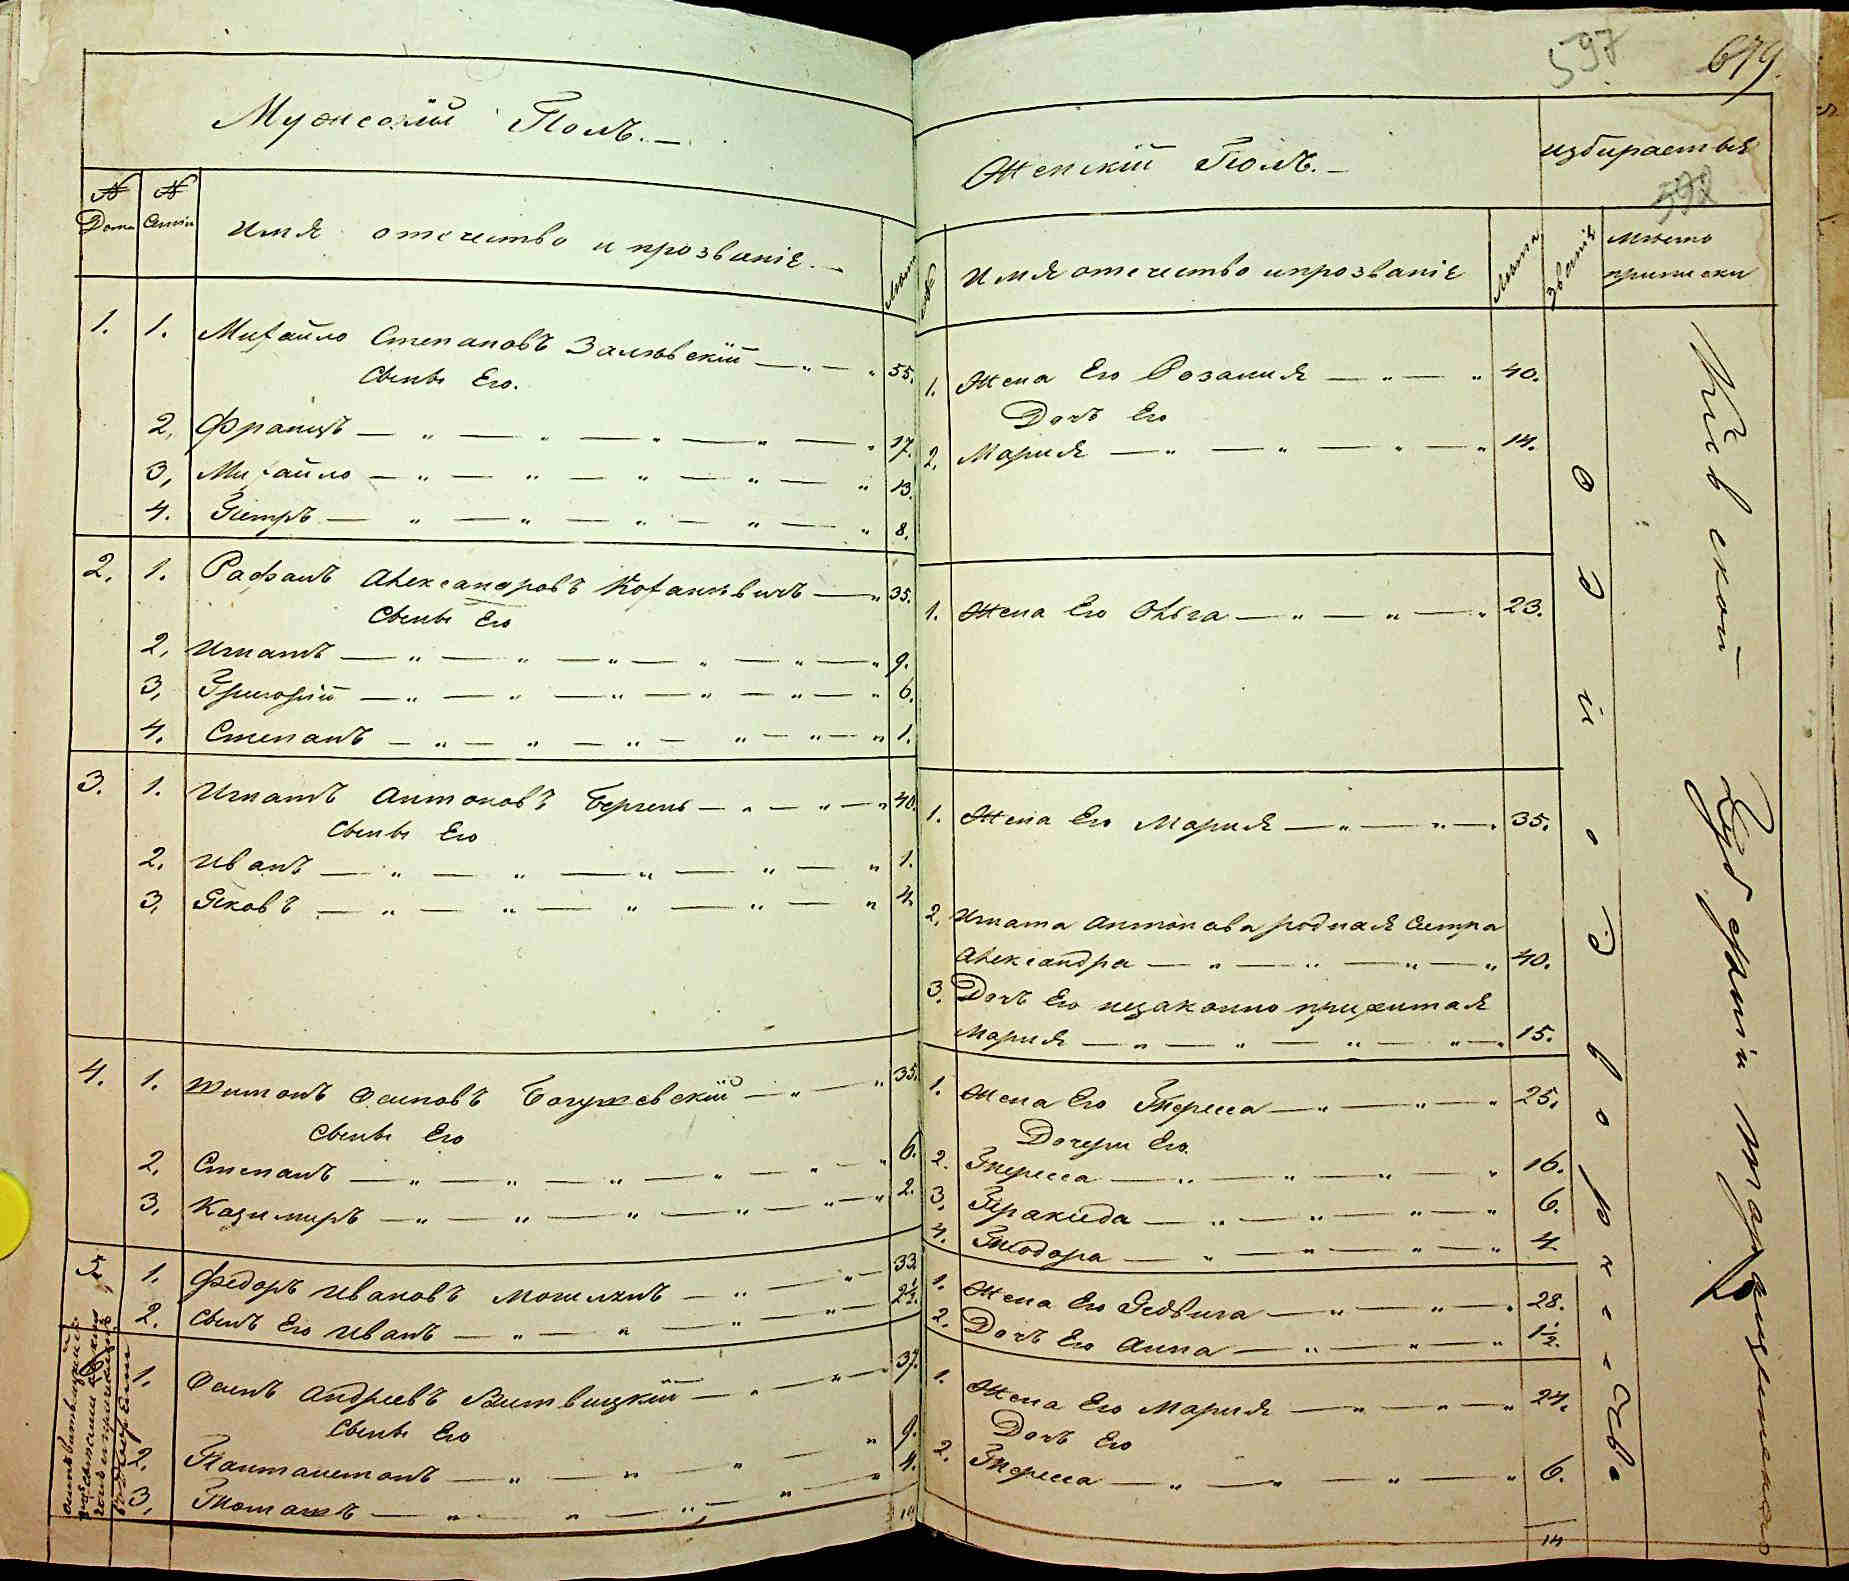 597
679.
Мужескій Полъ.
№ Дома
№ Семьи
Имя отечество и прозваніе.
Лѣта
1. 1. Михайло Степановъ Залѣвскій — „ — „ 55.
Сынъ Его.
2. Францъ — „ — „ — „ — „ — „ 17.
3. Михайло — „ — „ — „ — „ — „ 13.
4. Петръ — „ — „ — „ — „ — „ 8.
2. 1. Рафалъ Александровъ Коханѣвичъ — „ 35.
Сынъ Его
2. Игнатъ — „ — „ — „ — „ — „ — „ 9.
3. Григорій — „ — „ — „ — „ — „ — „ 6.
4. Степанъ — „ — „ — „ — „ — „ — „ 1.
3. 1. Игнатъ Антоновъ — „ — „ — „ 40.
Сынъ Его
2. Иванъ — „ — „ — „ — „ — „ 1.
3. Яковъ — „ — „ — „ — „ — „ 4.
4. 1. Осиповъ Богушевскій — „ — „ 35.
Сынъ Его
2. Степанъ — „ — „ — „ — „ — „ — „ 6.
3. Казимиръ — „ — „ — „ — „ — „ — „ 2.
5. 1. Федоръ Ивановъ — „ — „ 33.
2. Сынъ Его Иванъ — „ — „ — „ — „ 2½.
1. Осипъ Андреевъ Витвицкій — „ — „ 37.
Сынъ Его „ 9.
2. — „ — „ — „ — „ 4.
3. Томашъ — „ — „ — „ — „
Женскій Полъ.
избираетъя
592
№
Имя отечество и прозваніе
Лѣта
Званіе
мѣсто
приписки
1. Жена Его Розалия — „ — „ 40.
Дочъ Его
2. Мария — „ — „ — „ — „ 14.
1. Жена Его Ольга — „ — „ — „ 23.
1. Жена Его Мария — „ — „ — „ 35.
2. Игната Антонова родная Сестра
Александра — „ — „ — „ — „ 40.
3. Дочъ Его незаконно прижитая
Мария — „ — „ — „ — „ 15.
1. Жена Его Тереса — „ — „ — „ 25.
Дочери Его.
2. Тереса — „ — „ — „ — „ 16.
3. — „ — „ — „ — „ 6.
4. Теодора — „ — „ — „ — „ 4.
1. Жена Его Ядвига — „ — „ — „ 28.
2. Дочъ Его Анна — „ — „ — „ 1½.
1. Жена Его Мария — „ — „ — „ 24.
Дочъ Его
2. Тереса — „ — „ — „ — „ 6.
14
Кіевской Губерніи